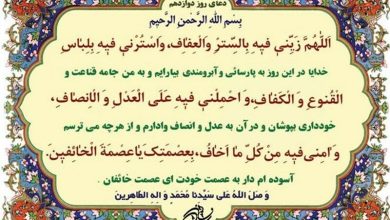 دعای روز دوازدهم
بِسْمِ اللهِ الرَّحْمنِ الرَّحیمِ
اَللّهُمَّ زَیِّنّی فیهِ بِالسِّترِ وَالْعِفافِ، وَاسْتُرْنی فیهِ بِلِباسِ
خدایا در این روز به پارسائی و آبرومندی بیارایم و به من جامه قناعت و
الْقُنوعِ وَ الْکَفافِ، وَاحْمِلْنی فیهِ عَلَی الْعَدْلِ وَ الْاِنْصافِ،
خودداری بپوشان و در آن به عدل و انصاف وادارم و از هرچه می ترسم
وَ امِنّی فیهِ مِنْ کُلِّ ما اَخافُ، بِعِصْمَتِکَ یاعِصْمَةَ الْخآئِفینَ.
آسوده ام دار به عصمت خودت ای عصمت خائفان .
وَ صَلَ اللهُ عَلی سَیِّدِنا مُحَمَدٍ وَ الِهِ الطاهرین